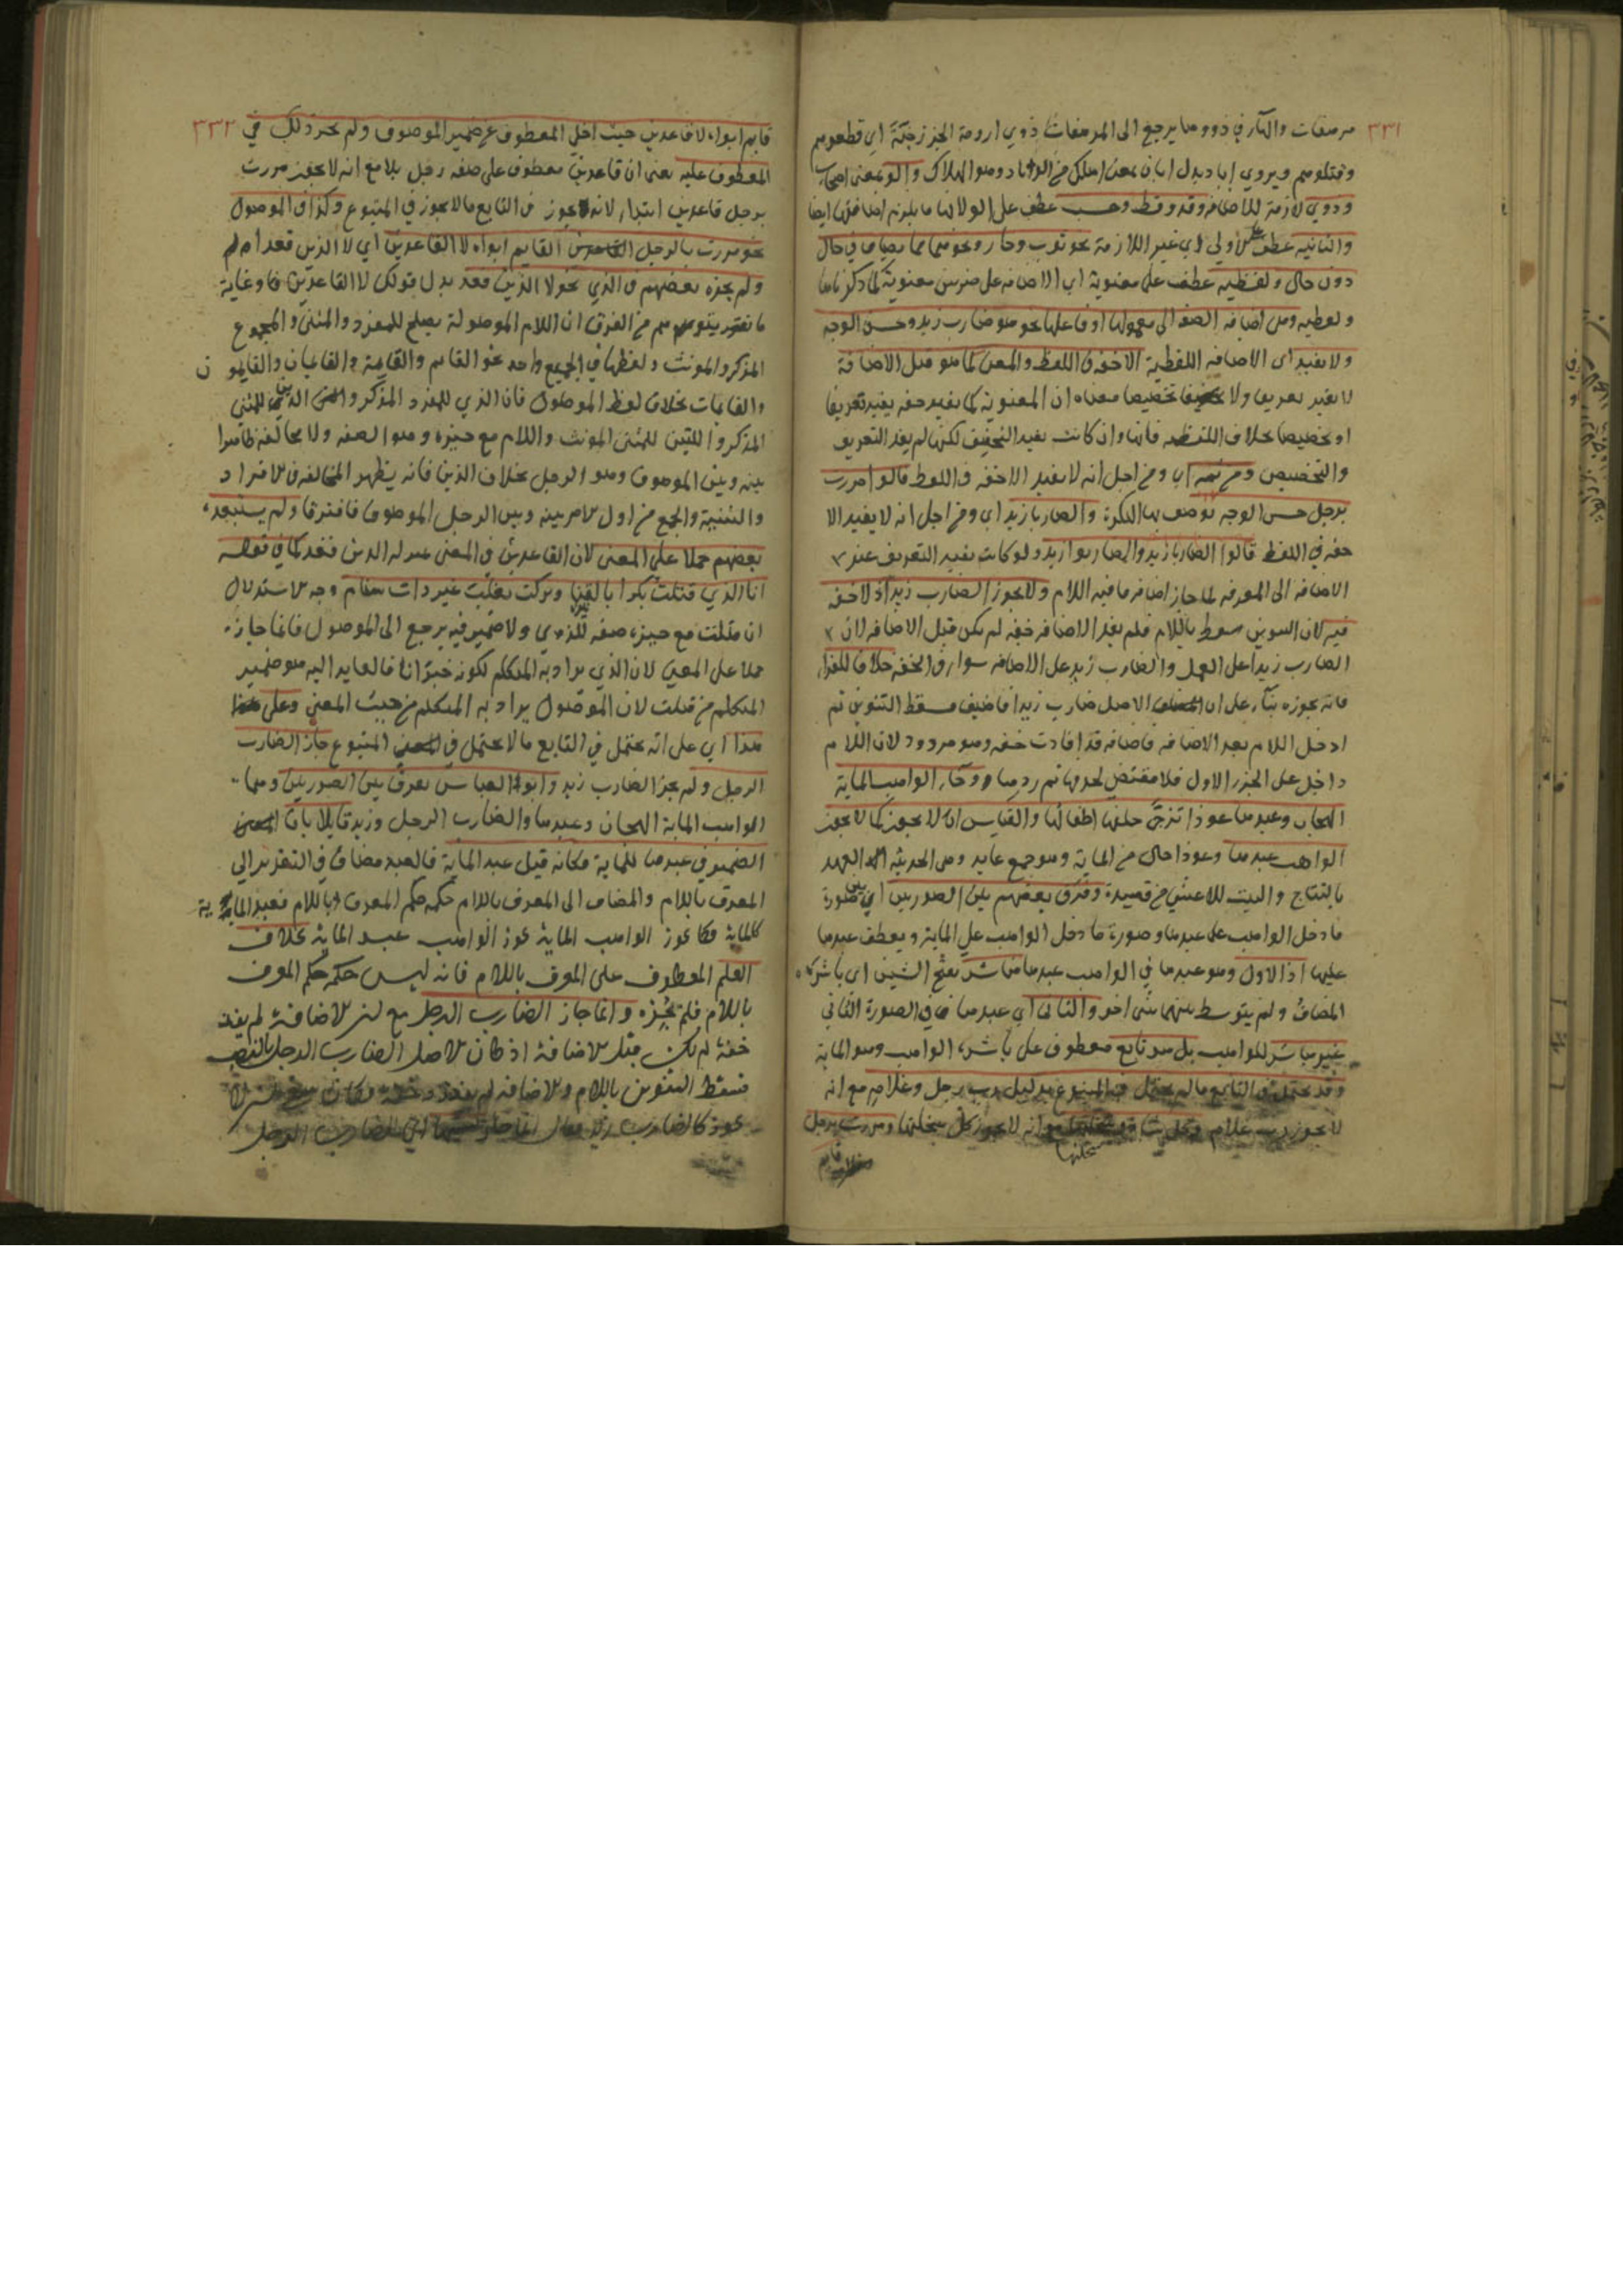 ٣٣١
مرهفات والهاء في ذووها يرجع الى المرهفات ذوي ارومة الخزرجية اي قطعوهم
وقتلوهم ويروي اباد بدل ابان بمعنى اهلك من الابادة وهو الهلاك والو بمعنى اصحاب
وذوي لازمة للاضافة وقد وقط وحسب عطف على الو لانها ما يلزم اضافتها ايضا
والثانية عطف على اولى اي غير اللازمة نحو ثوب ودار ونحوهما مما يضاف في حال
دون حال ولفظية عطف على معنوية اي الاضافة على ضربين معنوية كما ذكرناها
ولفظية وهي اضافة الصفة الى معمولها او فاعلها نحو هو ضارب زيد وحسن الوجه
ولا يفيد اي الاضافة اللفظية الا خفة في اللفظ والمعنى كما هو قبل الاضافة
لا يفيد تعريفا ولا تخصيصا معناه ان المعنوية كما يفيد خفة يفيد تعريفا
او تخصيصا بخلاف اللفظية فانها وان كانت يفيد التخفيف لكن لم يفد التعريف
والتخصيص ومن ثمه اي ومن اجل انه لا يفيد الا خفة في اللفظ قالوا مررت
برجل حسن الوجه توصف بها النكرة والضاربا زيد اي ومن اجل انه لا يفيد الا
خفة في اللفظ قالوا الضاربا زيد والضاربوا زيد ولو كانت يفيد التعريف عند
الاضافة الى المعرفة لما جاز اضافة ما فيه اللام ولا يجوز الضارب زيد اذ لا خفة
فيه لان التنوين سقط باللام فلم يفد الاضافة خفة لم يكن قبل الاضافة لان
الضارب زيدا على العمل والضارب زيد على الاضافة سواء في الخفة خلافا للفراء
فانه يجوزه بناء على ان الاصل ضارب زيدا فاضيف فسقط التنوين ثم
ادخل اللام بعد الاضافة فاضافة قد افادت خفة وهو مردود لان اللام
داخل على الجزء الاول فلا مقتضى لحذفها ثم ردها وجاء الواهب الماية
الهجان وعبدها عوذا تزجى خلفها اطفالها والقياس ان لا يجوز كما لا يجوز
الواهب عبدها وعوذا حال من الماية وهو جمع عايد وهي الحديثة العهد
بالنتاج والبيت للاعشي من قصيدة وفرق بعضهم بين الصورتين اي بين صورة
ما دخل الواهب على عبدها وصورة ما دخل الواهب على الماية ويعطف عبدها
عليها اذ الاول وهو عبدها في الواهب عبدها مباشر بفتح الشين اي باشره
المضاف ولم يتوسط بينهما شئ اخر والثاني اي عبدها في الصورة الثاني
غير مباشر للواهب بل هو تابع معطوف على باشره الواهب وهو الماية
وقد يحتمل في التابع ما لم يحتمل في المتبوع بدليل رب رجل وغلامه مع انه
لا يجوز رب غلامه وكل شاة وسخلتها مع انه لا يجوز كل سخلتها ومررت برجل
سخلتها
قايم
٣٣٢
قايم ابواه لا قاعدين حيث اخلي المعطوف عن ضمير الموصوف ولم يجز ذلك في
المعطوف عليه يعني ان قاعدين معطوف على صفة رجل بلا مع انه لا يجوز مررت
برجل قاعدين ابتداء لانه يجوز في التابع ما لا يجوز في المتبوع وكذا في الموصول
نحو مررت بالرجل القايم ابواه لا القاعدين اي لا الذين قعدا ولم
ولم يجزه بعضهم في الذي نحو لا الذين قعد بدل قولك لا القاعدين وغاية
ما نقرر يتوهم من الفرق ان اللام الموصولة يصلح للمفرد والمثنى والمجموع
المذكر والمونث ولفظها في الجميع واحد نحو القايم والقايمة والقايمان والقايمون
والقايمات بخلاف لفظ الموصول فان الذي للمفرد المذكر والذين للمثنى
المذكر واللتين للمثنى المونث واللام مع حيزه وهو الصفة ولا مخالفة ظاهرا
بينه وبين الموصوف وهو الرجل بخلاف الذين فانه يظهر المخالفة في الافراد
والتثنية والجمع من اول الامر بينه وبين الرجل الموصوف فافترقا ولم يستبعده
بعضهم حملا على المعنى لان القاعدين في المعنى بمنزلة الذين قعد كما في قوله
انا الذي قتلت بكرا بالقنا وتركت تغلب غير ذات سنام وجه الاستدلال
ان قتلت مع حيزه صفة للذي ولا ضمير فيه يرجع الى الموصول فانما جاز
حملا على المعنى لان الذي يراد به المتكلم لكونه خبر انا فالعايد اليه هو ضمير
المتكلم من قتلت لان الموصول يراد به المتكلم من حيث المعنى وعلى
هذا اي على انه يحتمل في التابع ما لا يحتمل في المتبوع جاز الضارب
الرجل ولم يجز الضارب زيد وابو العباس يفرق بين الصورتين وهما
الواهب الماية الهجان وعبدها والضارب الرجل وزيد قايلا بان
الضمير في عبدها للماية فكانه قيل عبد الماية فالعبد مضاف في التقدير الي
المعرف باللام والمضاف الى المعرف باللام حكمه حكم المعرف باللام فعبد الماية
كالماية فكما يجوز الواهب الماية يجوز الواهب عبد الماية بخلاف
العلم المعطوف على المعرف باللام فانه ليس حكمه حكم المعرف
باللام فلم يجزه وانما جاز الضارب الرجل مع ان الاضافة لم يفد
خفة لم يكن قبل الاضافة اذ كان الاصل الضارب الرجل بالنصب
فسقط التنوين باللام والاضافة لم يفد خفة فكان ان لا
يجوز كالضارب زيد الضارب الرجل